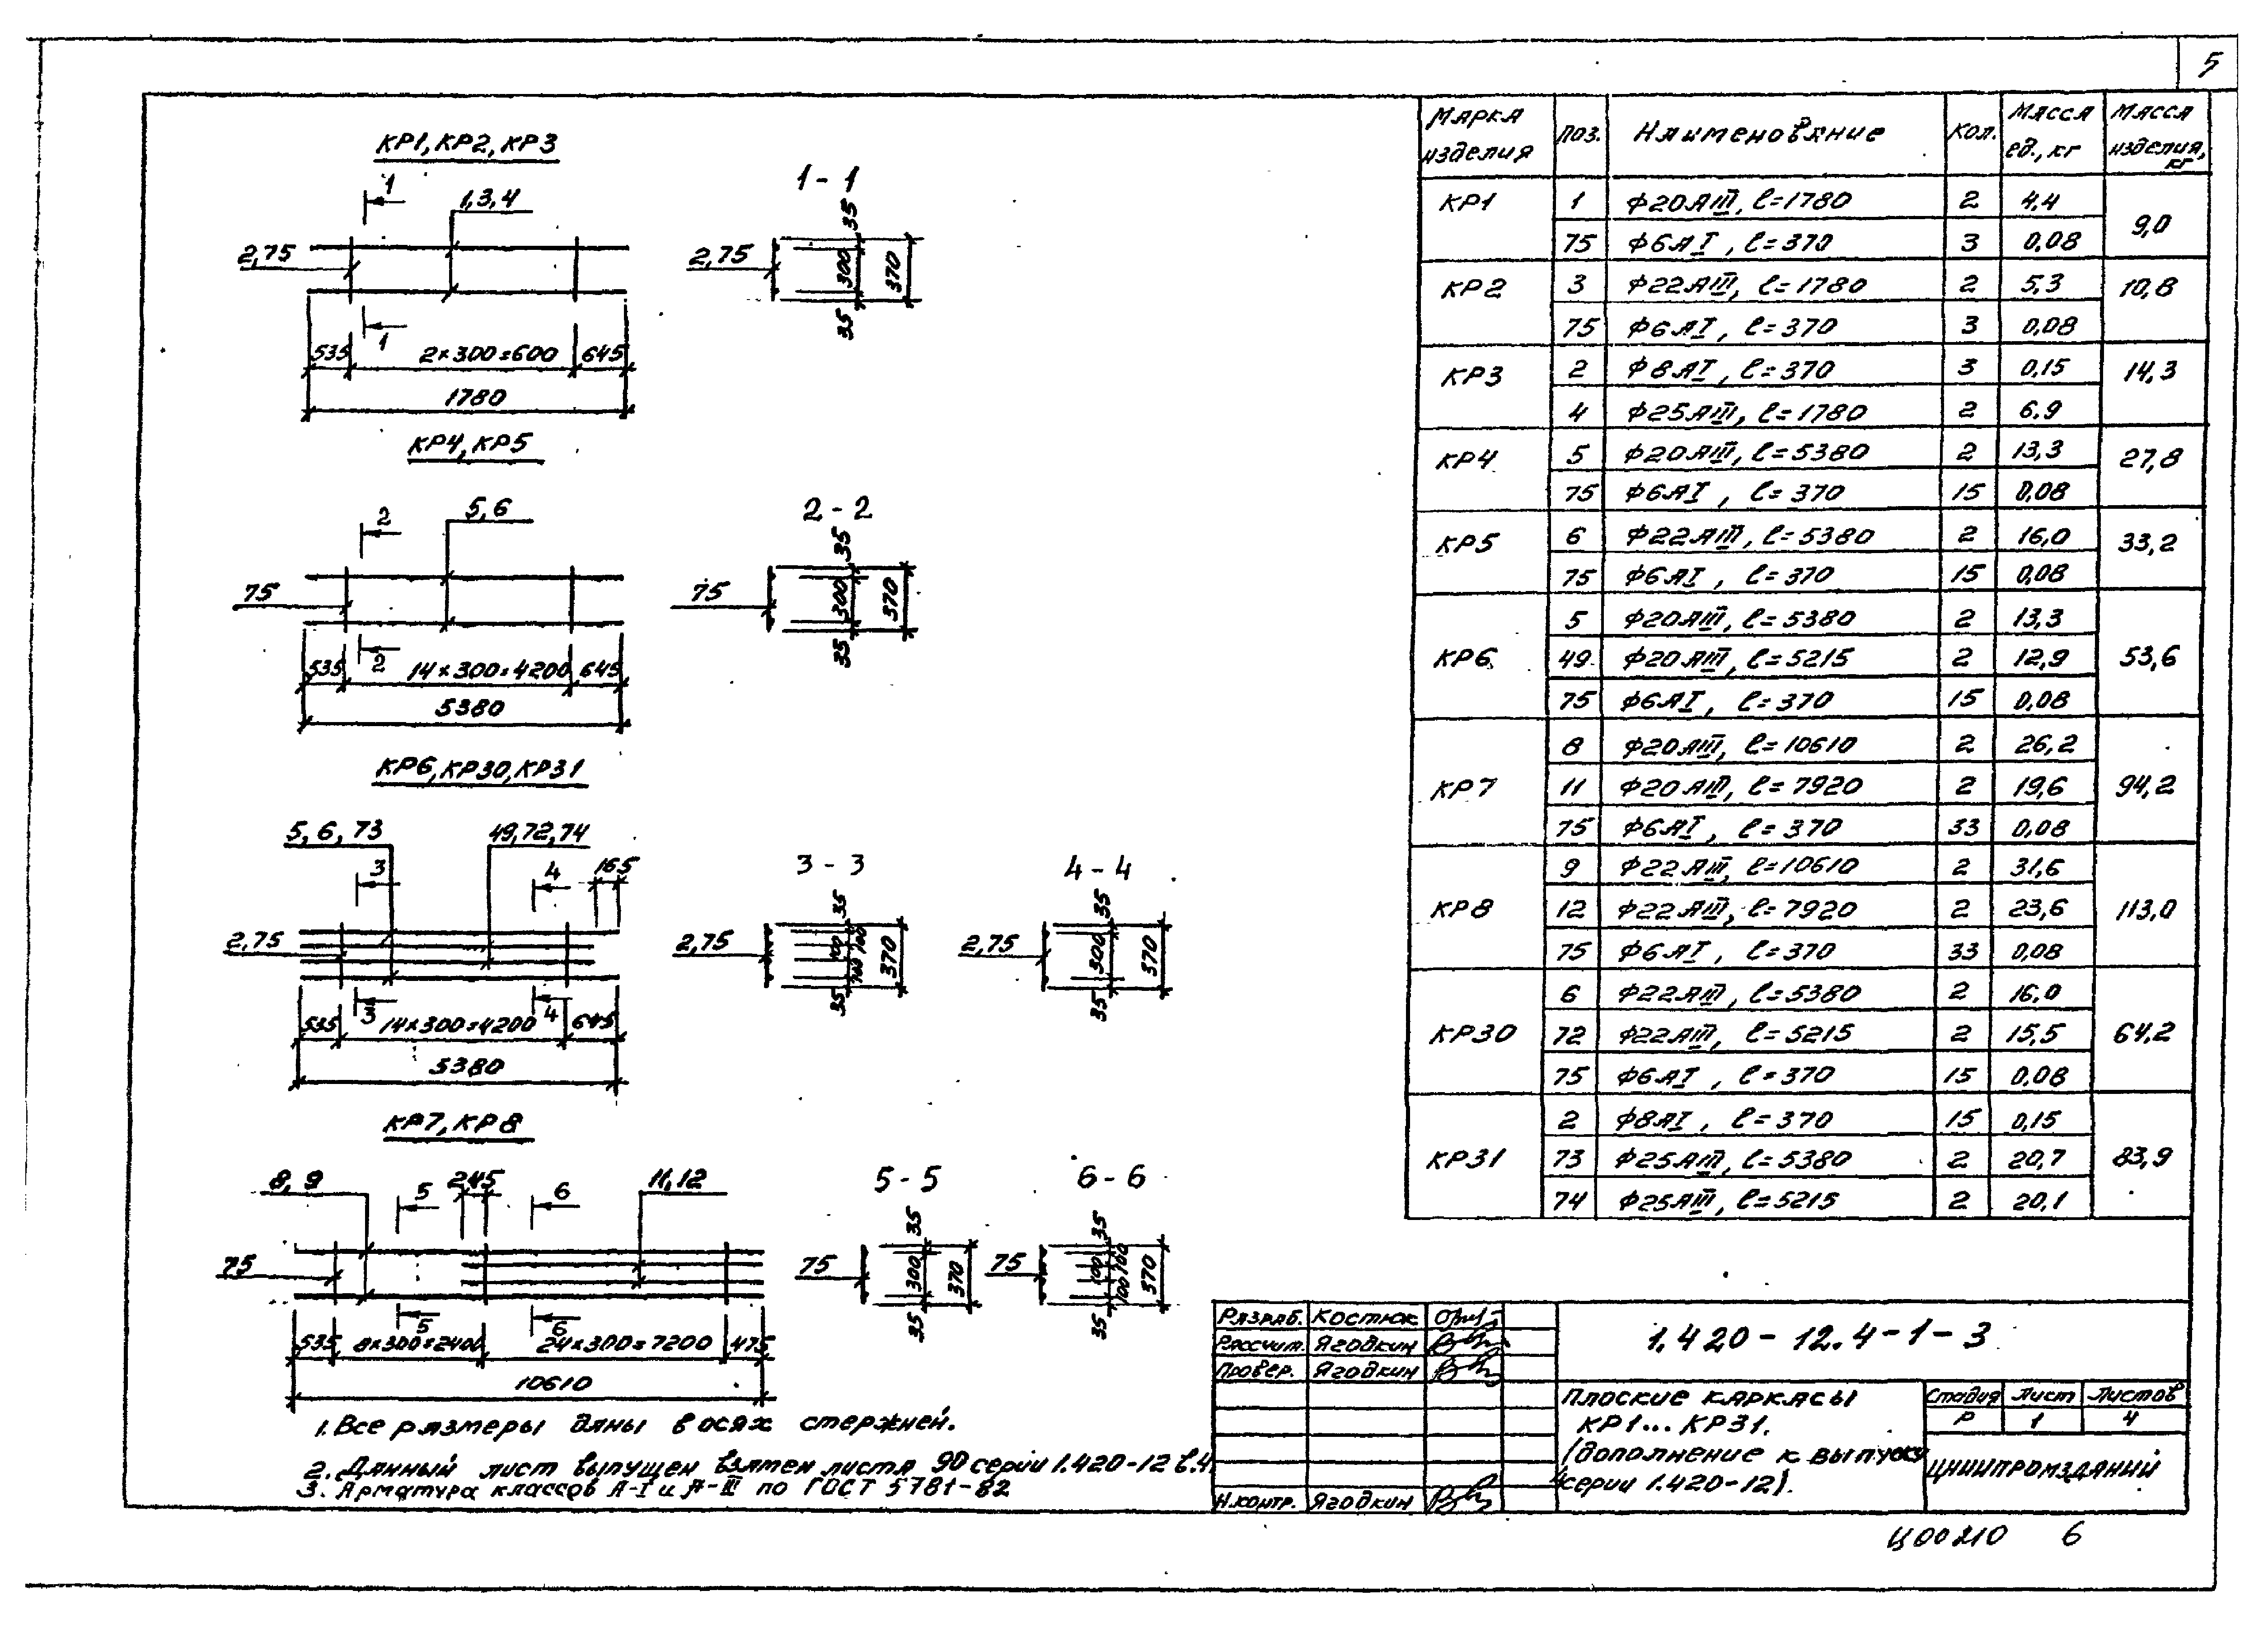 5
КР1, КР2, КР3
1
1,3,4
2,75
1
535
2×300=600
645
1780
1-1
2,75
35
300
370
35
КР4, КР5
2
5,6
75
2
535
14×300=4200
645
5380
2-2
75
35
300
370
35
КР6, КР30, КР31
5, 6, 73
49,72,74
3
4
165
2,75
3
4
535
14×300=4200
645
5380
3-3
2,75
35
100
100
100
370
35
4-4
2,75
35
300
370
35
КР7, КР8
8, 9
5
245
6
11,12
75
5
6
535
8×300=2400
24×300=7200
475
10610
5-5
75
35
300
370
35
6-6
75
35
100
100
100
370
35
1. Все размеры даны в осях стержней.
2. Данный лист выпущен взамен листа 90 серии 1.420-12 в.4
3. Арматура классов А-I и А-III по ГОСТ 5781-82
Марка изделия Поз. Наименование Кол. Масса ед., кг Масса изделия, кг
КР1 1 Ф20АIII, ℓ=1780 2 4,4 9,0
75 Ф6АI, ℓ=370 3 0,08
КР2 3 Ф22АIII, ℓ=1780 2 5,3 10,8
75 Ф6АI, ℓ=370 3 0,08
КР3 2 Ф8АI, ℓ=370 3 0,15 14,3
4 Ф25АIII, ℓ=1780 2 6.9
КР4 5 Ф20АIII, ℓ=5380 2 13,3 27,8
75 Ф6АI, ℓ=370 15 0,08
КР5 6 Ф22АIII, ℓ=5380 2 16,0 33,2
75 Ф6АI, ℓ=370 15 0,08
КР6 5 Ф20АIII, ℓ=5380 2 13,3 53,6
49 Ф20АIII, ℓ=5215 2 12,9
75 Ф6АI, ℓ=370 15 0,08
КР7 8 Ф20АIII, ℓ=10610 2 26,2 94,2
11 Ф20АIII, ℓ=7920 2 19,6
75 Ф6АI, ℓ=370 33 0,08
КР8 9 Ф22АIII, ℓ=10610 2 31,6 113,0
12 Ф22АIII, ℓ=7920 2 23,6
75 Ф6АI, ℓ=370 33 0,08
КР30 6 Ф22АIII, ℓ=5380 2 16,0 64,2
72 Ф22АIII, ℓ=5215 2 15,5
75 Ф6АI, ℓ=370 15 0,08
КР31 2 Ф8АI, ℓ=370 15 0,15 83,9
73 Ф25АIII, ℓ=5380 2 20,7
74 Ф25АIII, ℓ=5215 2 20,1
Разраб. Костюк
Рассчит. Ягодкин
Провер. Ягодкин
Н.контр. Ягодкин
1.420-12.4-1-3
Плоские каркасы
КР1... КР31.
(дополнение к выпуску
4 серии 1.420-12).
Стадия Лист Листов
Р 1 4
ЦНИИПРОМЗДАНИЙ
Ц00210 6